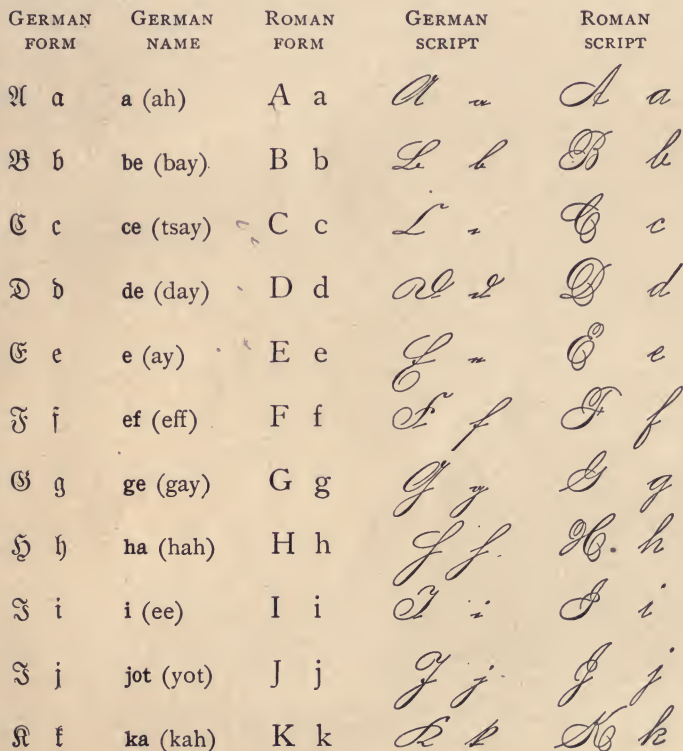 GERMAN GERMAN ROMAN GERMAN ROMAN
FORM NAME FORM SCRIPT SCRIPT
A a a (ah) A a A a A a
B b be (bay) B b B b B b
C c ce (tsay) C c C c C c
D d de (day) D d D d D d
E e e (ay) E e E e E e
F f ef (eff) F f F f F f
G g ge (gay) G g G g G g
H h ha (hah) H h H h H h
I i i (ee) I i I i I i
J j jot (yot) J j J j J j
K k ka (kah) K k K k K k